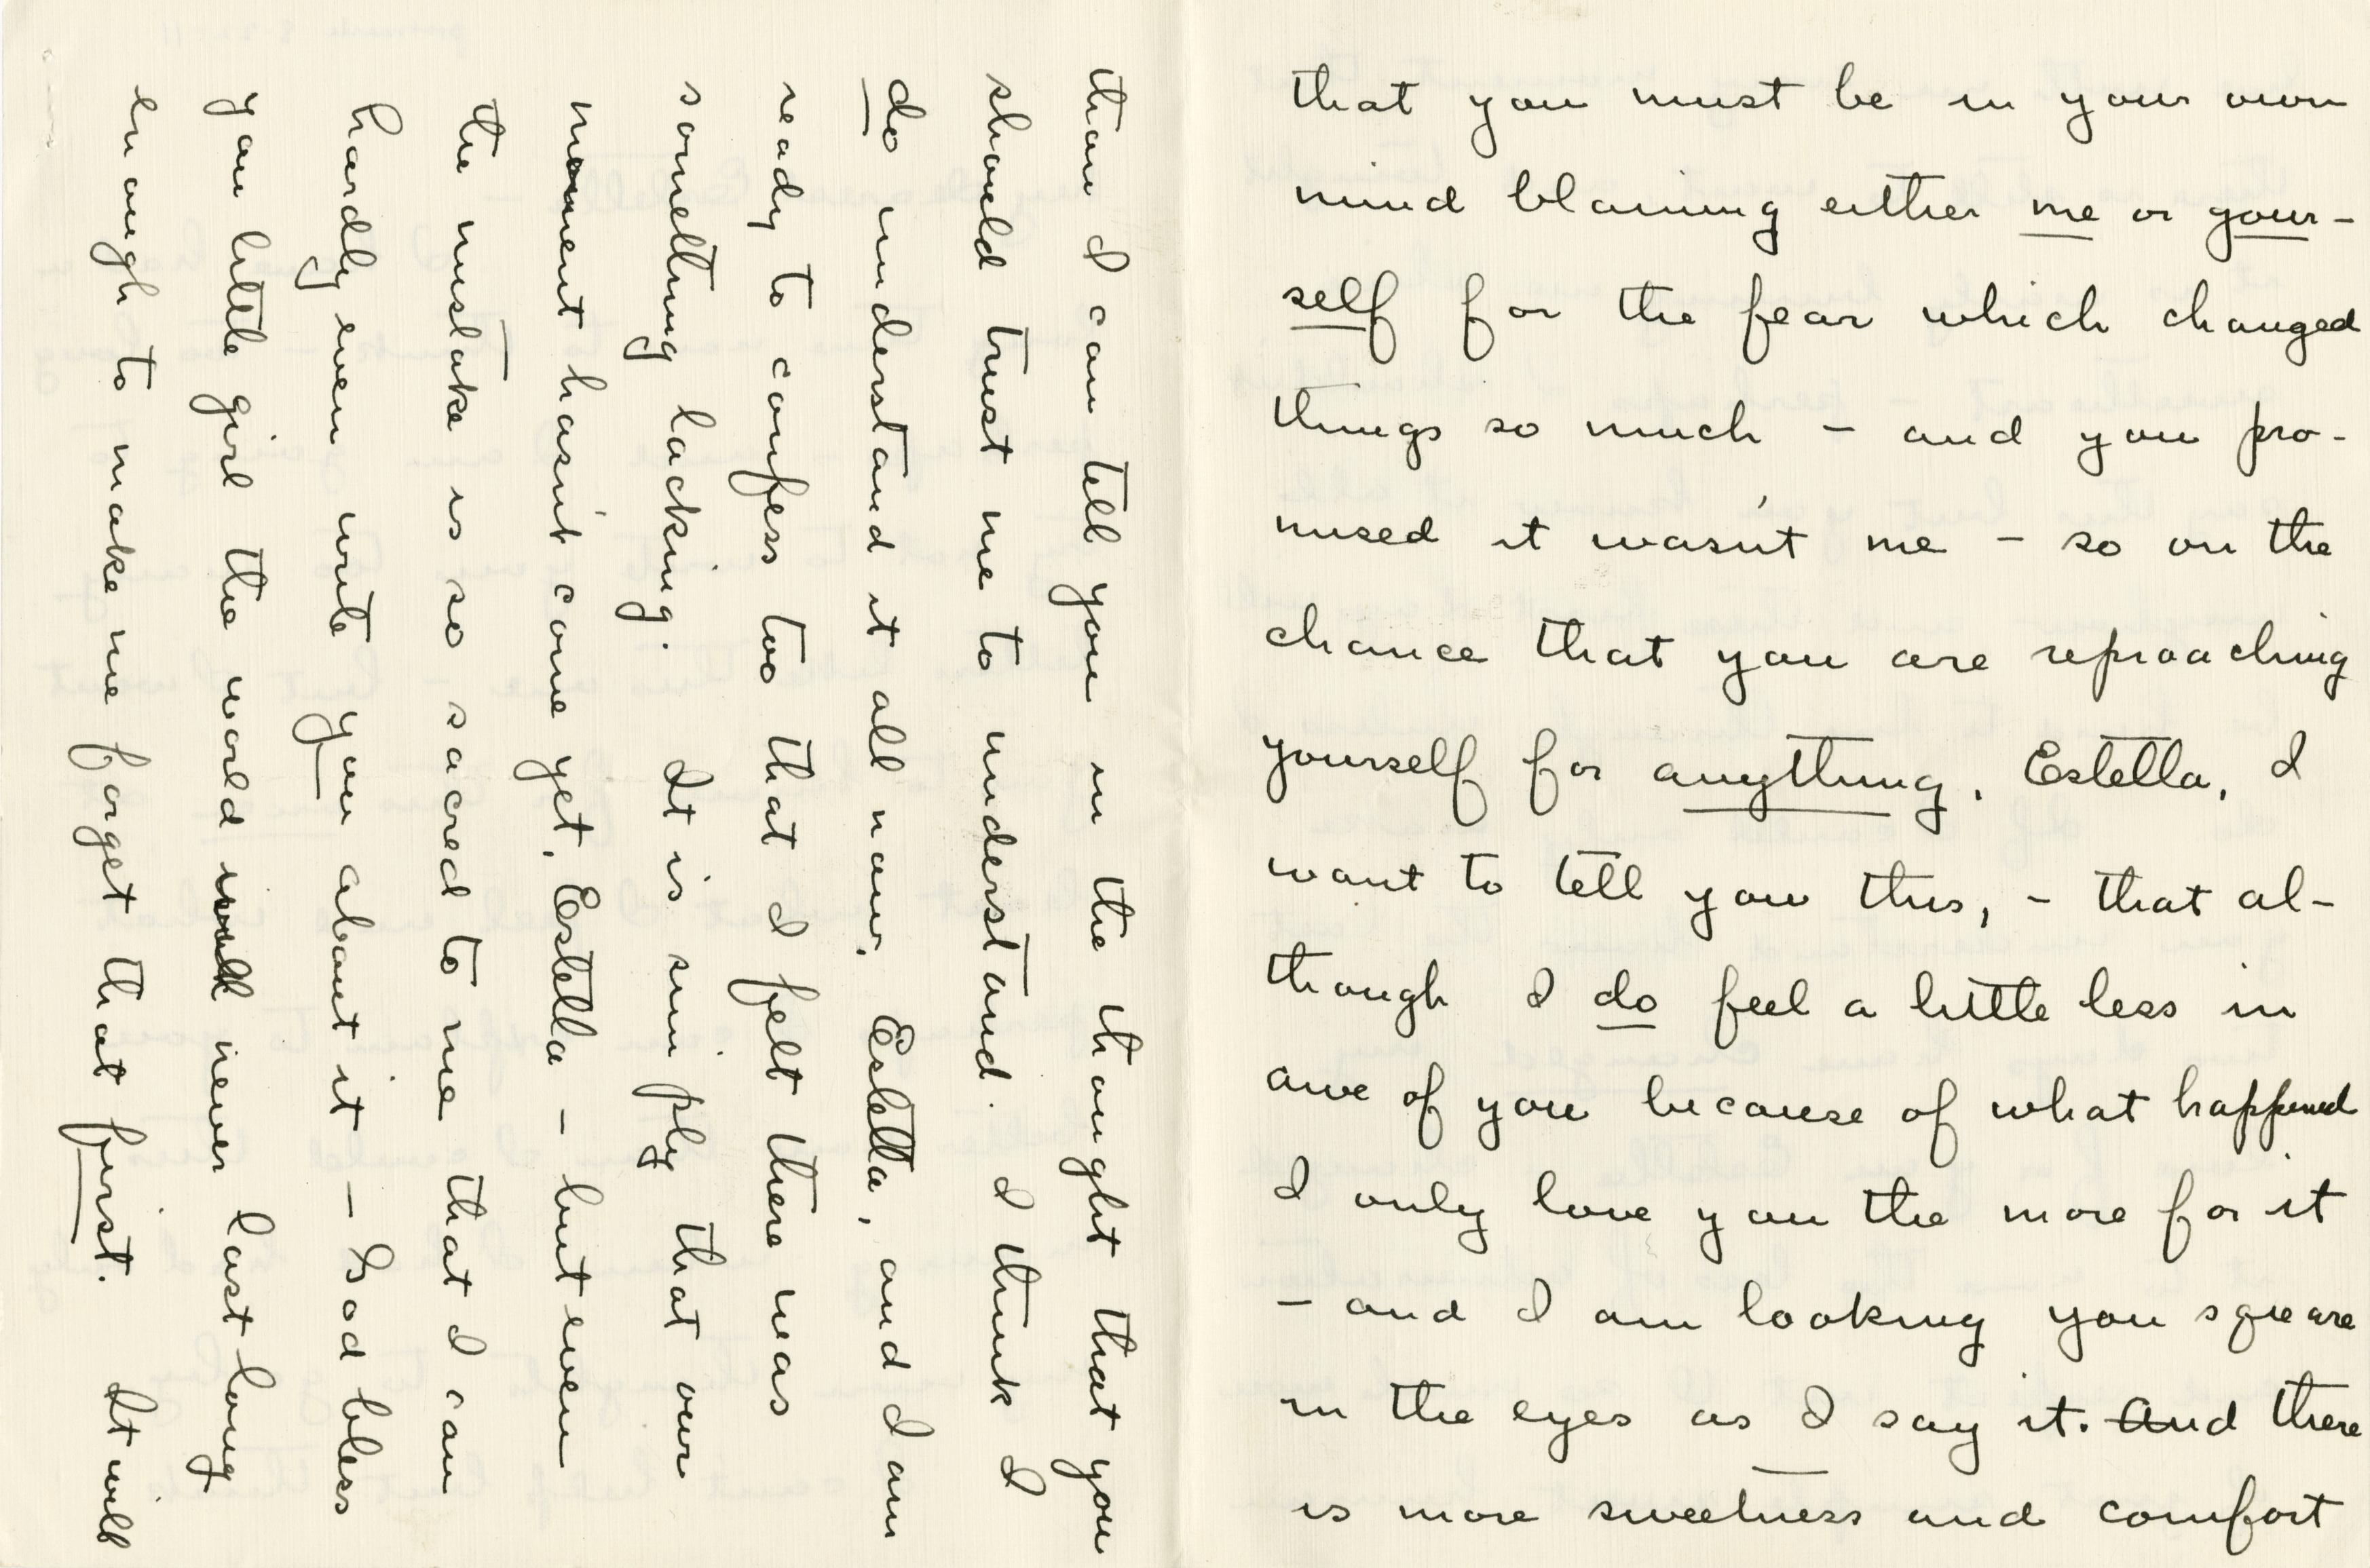 that you must be in your own
mind blaming either me or your-
self for the fear which changed
things so much – and you pro-
mised it wasn't me – so on the
chance that you are reproaching
yourself for anything, Estella, I
want to tell you this, – that al-
though I do feel a little less in
awe of you because of what happened
I only love you the more for it
– and I am looking you square
in the eyes as I say it. And there
is more sweetness and comfort
than I can tell you in the thought that you
should trust me to understand. I think I
do understand it all now, Estella, and I am
ready to confess too that I felt there was
something lacking. It is simply that our
moment hasn't come yet, Estella – but even
the mistake is so sacred to me that I can
hardly even write you about it – God bless
you little girl the world will never last long
enough to make me forget that first. It will